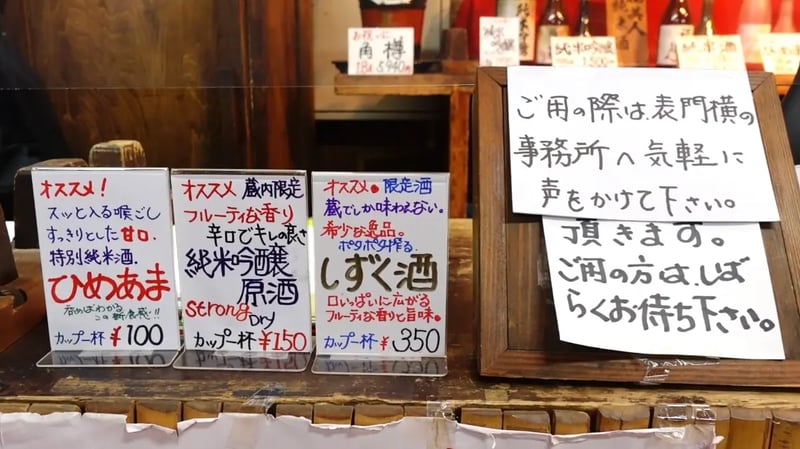 お祝いに
角樽
1.8ℓ 8,940円
純米吟醸
純米吟醸
1,500
純米酒
オススメ!
スッと入る喉ごし
すっきりとした甘口。
特別純米酒。
ひめあま
呑めばわかる
この新食感!!
カップ一杯 ¥100
オススメ 蔵内限定
フルーティな香り
辛口でキレの良さ
純米吟醸
原酒
strong
Dry
カップ一杯 ¥150
オススメ。限定酒
蔵でしか味わえない。
希少な逸品。
ポタポタ搾る。
しずく酒
口いっぱいに広がる
フルーティな香りと旨味。
カップ一杯 ¥350
ご用の際は、表門横の
事務所へ気軽に
声をかけて下さい。
頂きます。
ご用の方は、しば
らくお待ち下さい。